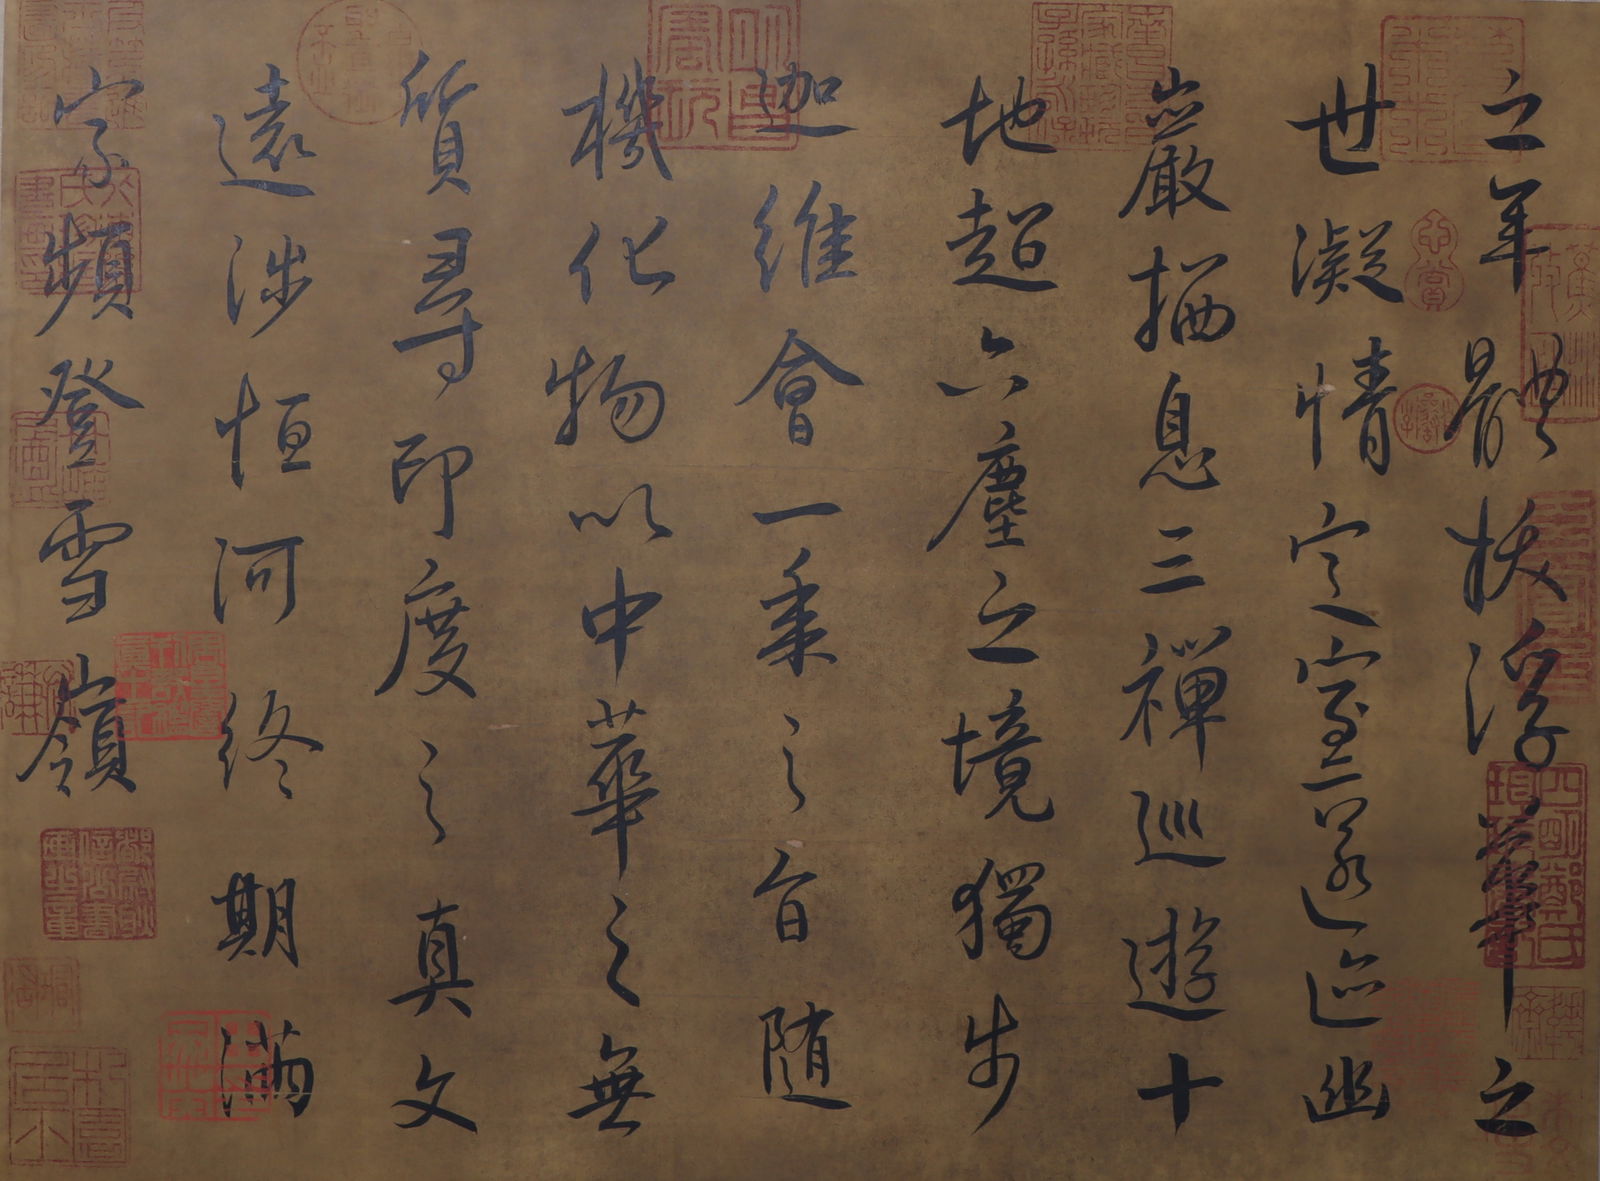 之年體拔浮華之
世凝情定室匿迹幽
巖栖息三禪巡遊十
地超六塵之境獨步
迦維會一乘之旨随
機化物以中華之無
質尋印度之真文
遠涉恒河終期滿
字頻登雪嶺